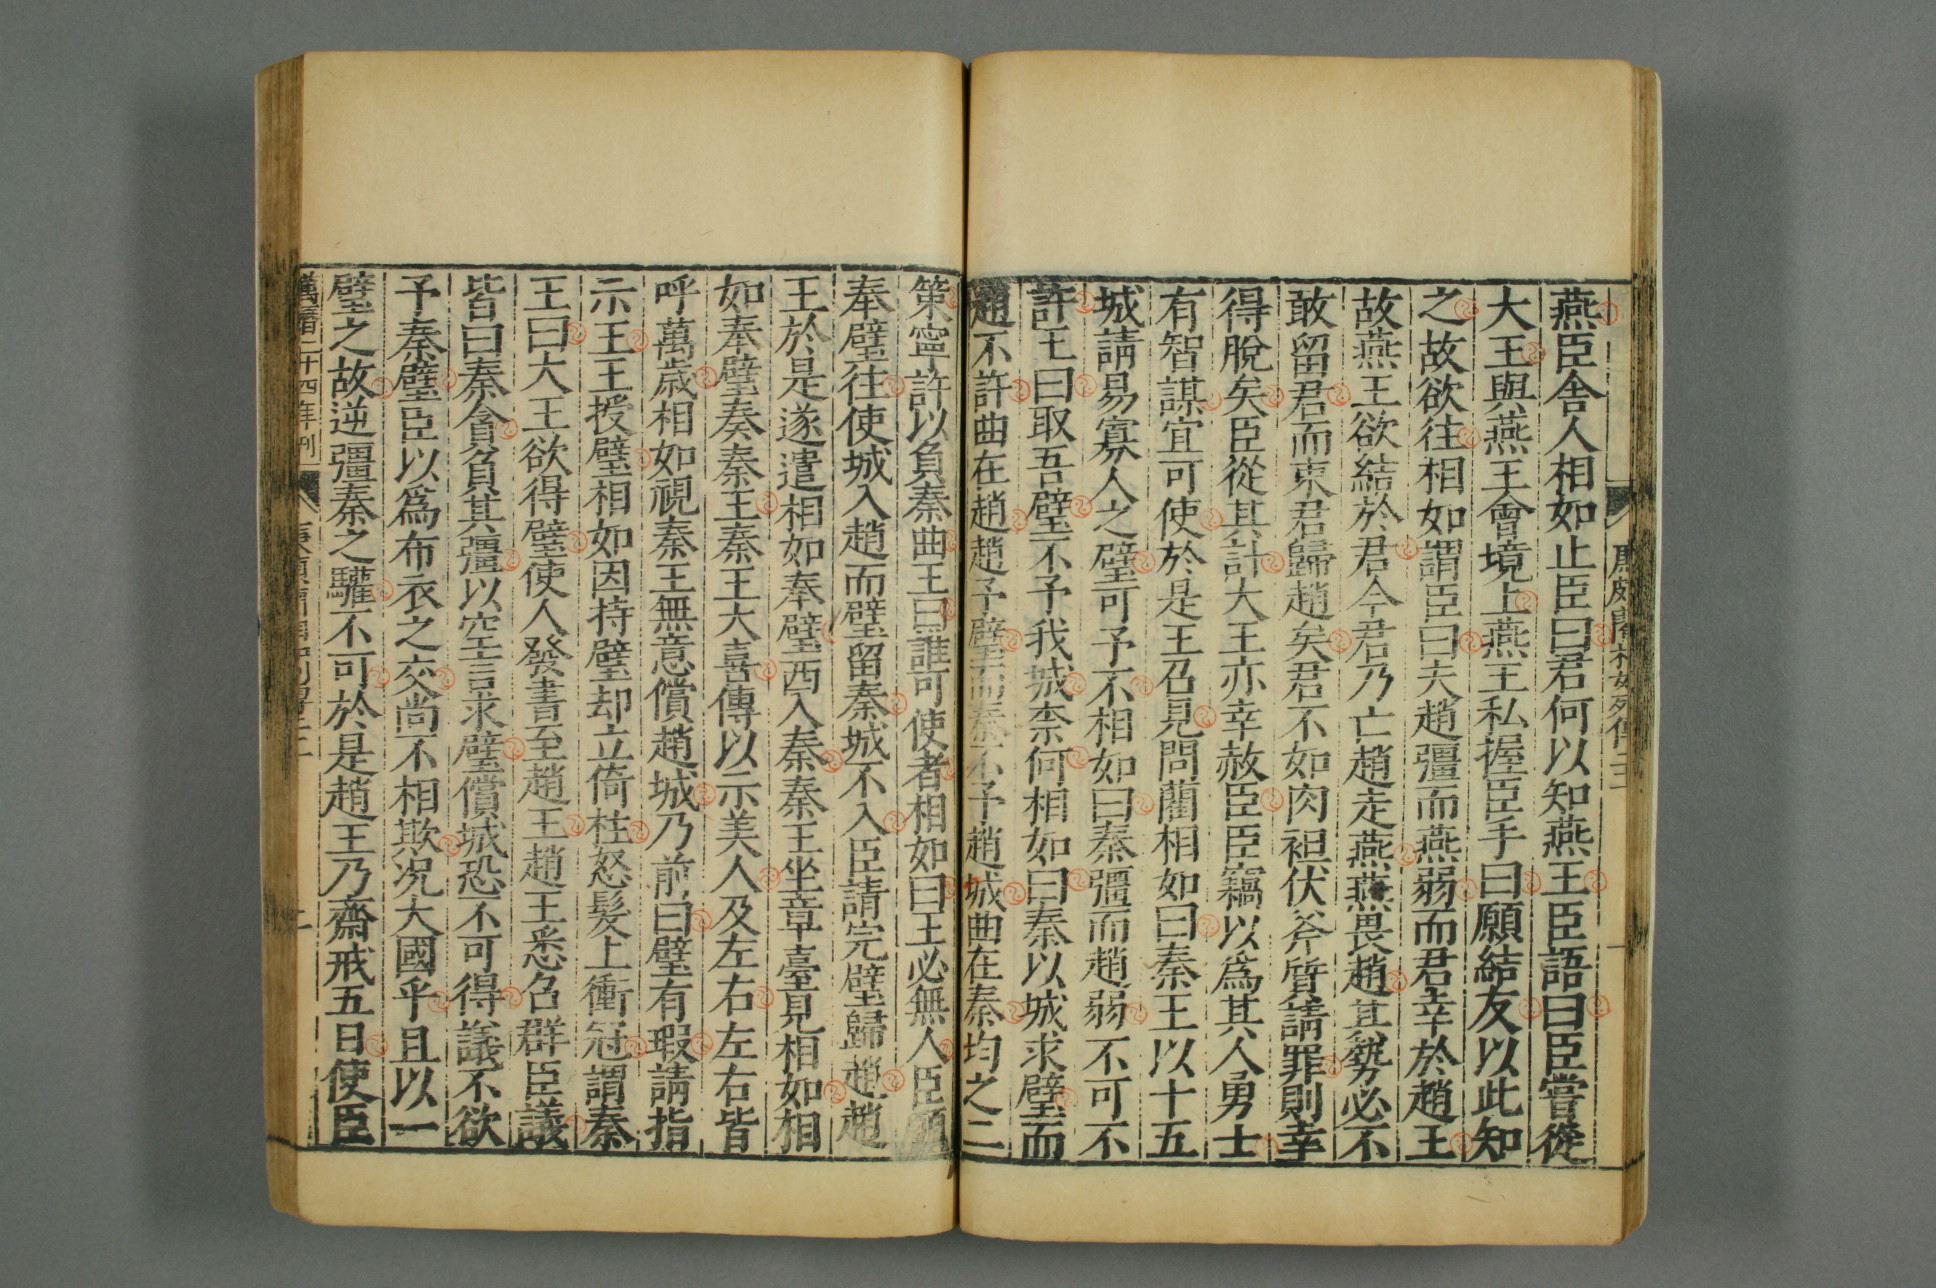 燕臣舍人相如止臣曰君何以知燕王臣語曰臣嘗從
大王與燕王會境上燕王私握臣手曰願結友以此知
之故欲往相如謂臣曰夫趙彊而燕弱而君幸於趙王
故燕王欲結於君今君乃亡趙走燕燕畏趙其勢必不
敢留君而束君歸趙矣君不如肉袒伏斧質請罪則幸
得脫矣臣從其計大王亦幸赦臣臣竊以爲其人勇士
有智謀宜可使於是王召見問藺相如曰秦王以十五
城請易寡人之璧可予不相如曰秦彊而趙弱不可不
許王曰取吾璧不予我城柰何相如曰秦以城求璧而
趙不許曲在趙趙予璧而秦不予趙城曲在秦均之二
策寧許以負秦曲王曰誰可使者相如曰王必無人臣願
奉璧往使城入趙而璧留秦城不入臣請完璧歸趙趙
王於是遂遣相如奉璧西入秦秦王坐章臺見相如相
如奉璧奏秦王秦王大喜傳以示美人及左右左右皆
呼萬歲相如視秦王無意償趙城乃前曰璧有瑕請指
示王王授璧相如因持璧却立倚柱怒髮上衝冠謂秦
王曰大王欲得璧使人發書至趙王趙王悉召群臣議
皆曰秦貪負其彊以空言求璧償城恐不可得議不欲
予秦璧臣以爲布衣之交尚不相欺况大國乎且以一
璧之故逆彊秦之驩不可於是趙王乃齋戒五日使臣
萬曆二十四年刊